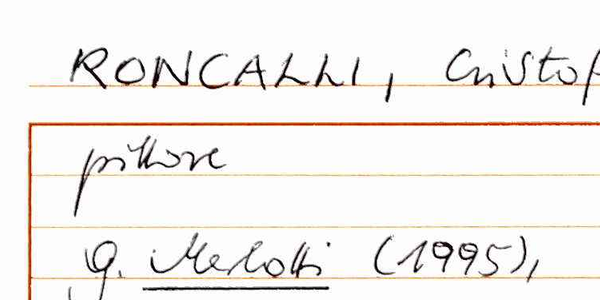 RONCALLI, Cristof
pittore
G. Merlotti (1995),